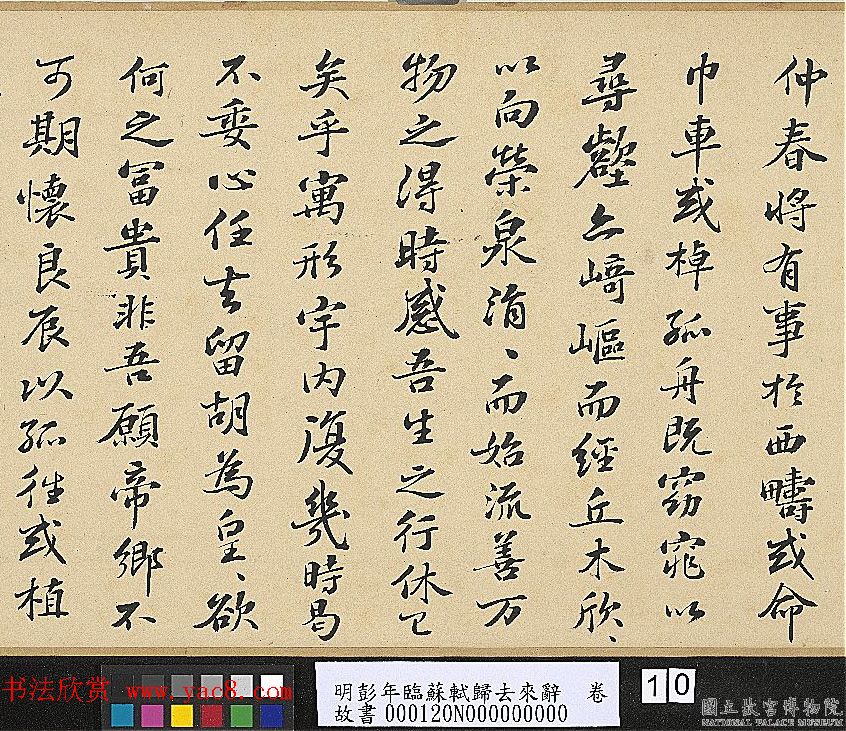 仲春將有事於西疇或命
巾車或棹孤舟既窈窕以
尋壑亦崎嶇而經丘木欣、
以向榮泉涓、而始流善万
物之得時感吾生之行休已
矣乎寓形宇内復幾時曷
不委心任去留胡為皇、欲
何之富貴非吾願帝鄉不
可期懷良辰以孤往或植
书法欣赏 www.yac8.com
明彭年臨蘇軾歸去來辭 卷
故書 000120N000000000
10
國立故宮博物院
NATIONAL PALACE MUSEUM